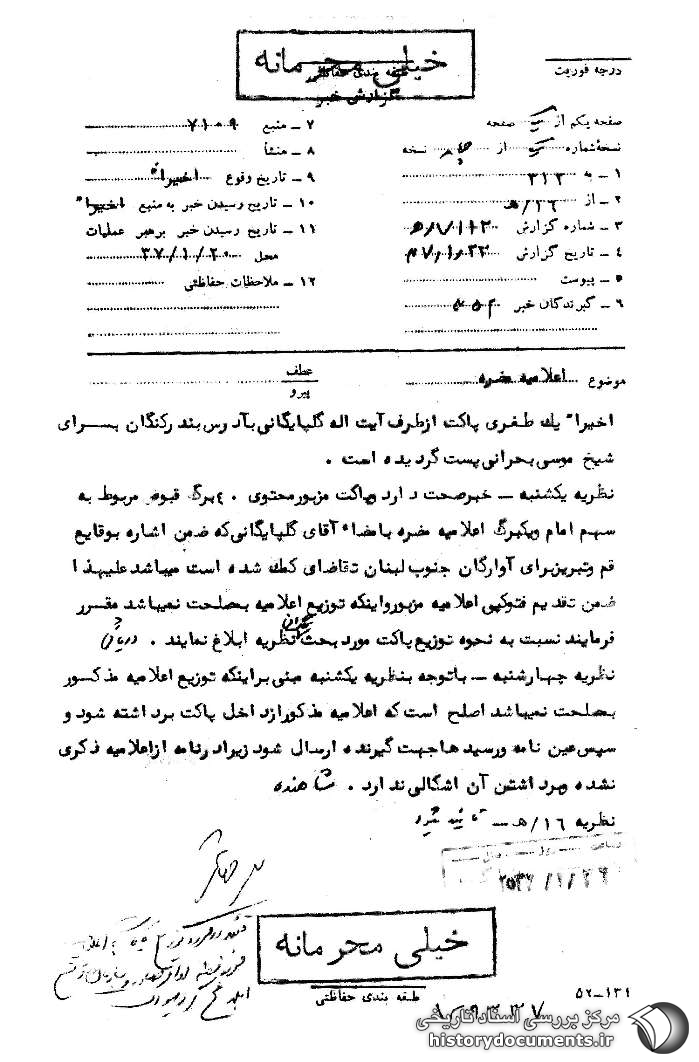 خیلی محرمانه
طبقه بندی حفاظتی
گزارش خبر
درجه فوریت
صفحه یکم از یک صفحه
نسخه شماره از نسخه
۱ ـ به ۳۱۲
۲ ـ از ۱۶/هـ
۳ ـ شماره گزارش
۴ ـ تاریخ گزارش
۵ ـ پیوست
۶ ـ گیرندگان خبر
۷ ـ منبع ۷۱۰۹
۸ ـ منشأ
۹ ـ تاریخ وقوع اخیرا"
۱۰ ـ تاریخ رسیدن خبر به منبع اخیرا"
۱۱ ـ تاریخ رسیدن خبر برهبر عملیات
محل ۳۷/۱/۲۰
۱۲ ـ ملاحظات حفاظتی
موضوع اعلامیه مضره
عطف
پیرو
اخیرا" یك طغری پاكت ازطرف آیت اله گلپایگانی بآدرس بند ركنگان بسرای
شیخ موسی بحرانی پست گردیده است .
نظریه یكشنبه ـ خبرصحت دارد وپاكت مزبورمحتوی ۴۰ برگ قبوض مربوط به
سهم امام ویكبرگ اعلامیه مضره بامضاء آقای گلپایگانی كه ضمن اشاره بوقایع
قم وتبریزبرای آوارگان جنوب لبنان تقاضای كمك شده است میباشد علیهذا
ضمن تقدیم فتوكپی اعلامیه مزبورواینكه توزیع اعلامیه بمصلحت نمیباشد مقرر
فرمایند نسبت به نحوه توزیع پاكت مورد بحث نظریه ابلاغ نمایند .
نظریه چهارشنبه ـ باتوجه بنظریه یكشنبه مبنی براینكه توزیع اعلامیه مذكسور
بمصلحت نمیباشد اصلح است كه اعلامیه مذكورازداخل پاكت برداشته شود و
سپس عین نامه ورسیدهاجهت گیرنده ارسال شود زیرادرنامه ازاعلامیه ذكری
نشده وبرداشتن آن اشگالی ندارد . شاهنده
نظریه ۱۶/هـ ـ تائید میشود
۲۵۳۷/۱/۲۶
خیلی محرمانه
طبقه بندی حفاظتی
۵۲-۱۳۱
مرکز بررسی اسناد تاریخی
historydocuments.ir